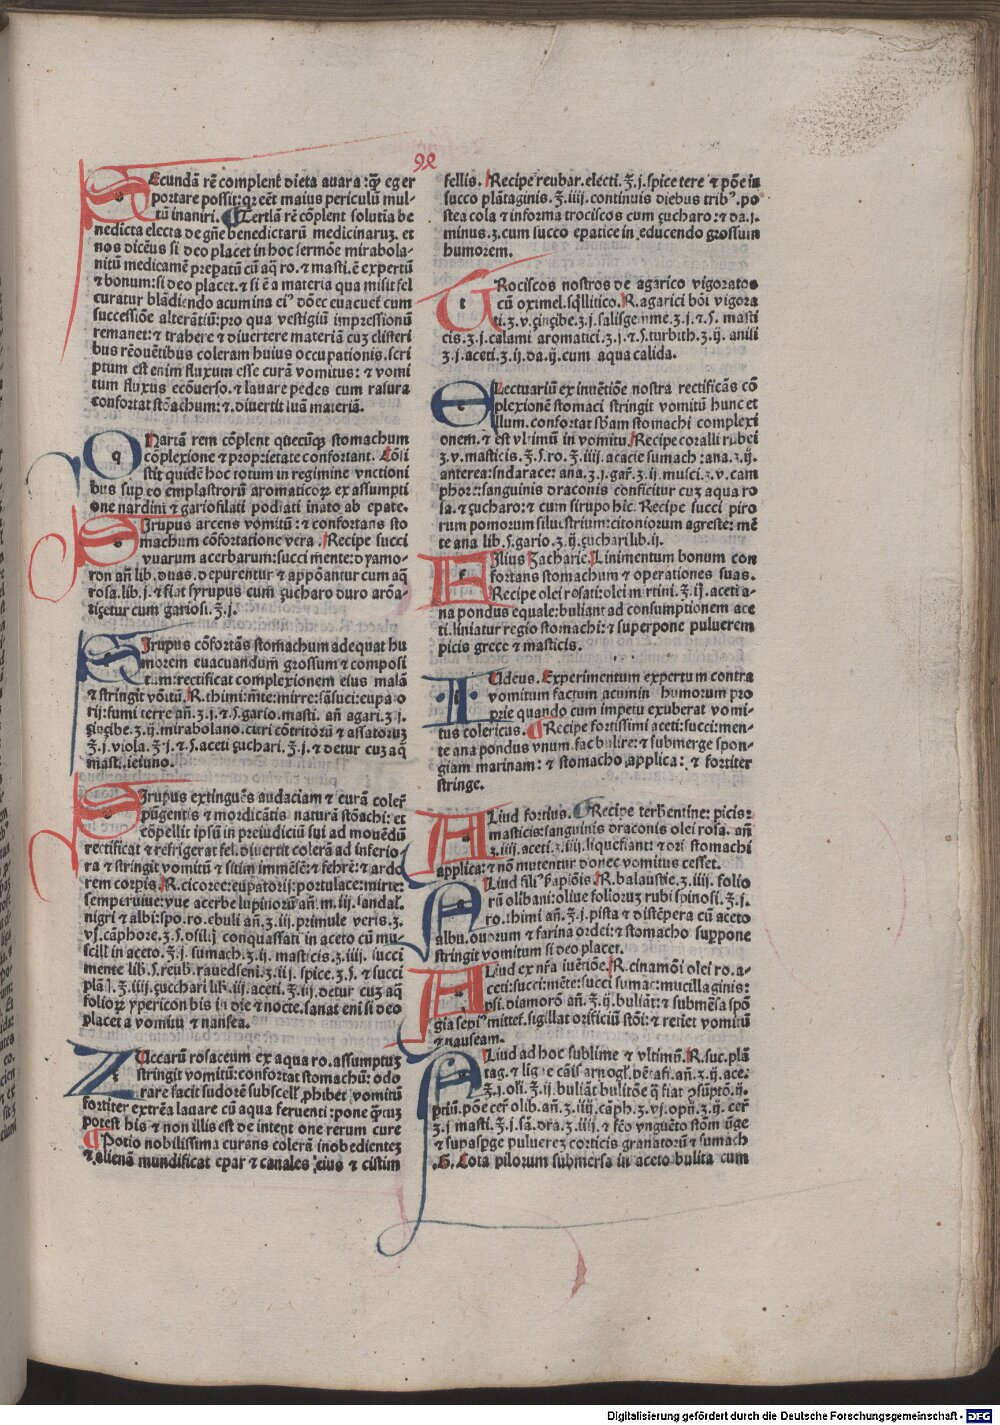 92
SEcundā rē complent dieta auara: qȝ eger
portare possit: qꝛ eēt maius periculū mul-
tū inaniri. Tertiā rē cōplent solutia be
nedicta electa de gn̄e benedictarū medicinaruȝ. et
nos diceus si deo placet in hoc sermōe mirabola-
nitū medicamē prepatū cū aq̄ ro. ⁊ masti. ē expertū
⁊ bonum: si deo placet. ⁊ si ē a materia qua misit fel
curatur blādiendo acumina eiꝰ dōec euacuet̄ cum
successiōe alterātiū: pro qua vestigiū impressionū
remanet: ⁊ trahere ⁊ diuertere materiā cuȝ clisteri
bus remouētibus coleram huius occupationis. scri
ptum est enim fluxum esse curā vomitus: ⁊ vomi
tum fluxus ecōuerso. ⁊ lauare pedes cum rasura
confortat stōachum: ⁊ diuertit suā materiā.
QUartā rem cōplent quecūqȝ stomachum
cōplexione ⁊ proprietate confortant. Cōsi
stit quidē hoc totum in regimine vnctioni
bus sup eo emplastrorū aromaticoꝝ ex assumpti
one nardini ⁊ gariofilati podiati inato ab epate.
SIrupus arcens vomitū: ⁊ confortans sto
machum cōfortatione vera. Recipe succi
vuarum acerbarum: succi mente: dyamo-
ron añ lib. duas. depurentur ⁊ appōantur cum aq̄
rosa. lib. j. ⁊ fiat syrupus cum çucharo duro aroa-
tiçetur cum gariofi. ȝ. j.
SIrupus cōfortās stomachum adequat hu
morem euacuandum grossum ⁊ composi
tum: rectificat complexionem eius malā
⁊ stringit vōitū. R. thimi: mēte: mirre: sāsuci: eupato
rij: fumi terre añ. ȝ. j. ⁊ s. gario. masti. añ agari. ȝ j.
çīçibe. ȝ. ij. mirabolano. curi cōtritorū ⁊ assatoruȝ
ȝ. j. viola. ȝ. j. ⁊ s. aceti çuchari. ȝ. j. ⁊ detur cuȝ aq̄
masti. ieiuno.
SIrupus extinguēs audaciam ⁊ curā coler̄
pūgentis ⁊ mordicātis naturā stōachi: et
cōpellit ipsū in preiudiciū sui ad mouēdū
rectificat ⁊ refrigerat fel. diuertit colerā ad inferio-
ra ⁊ stringit vomitū ⁊ sitim immēsē: ⁊ febrē: ⁊ ardo
rem corpis. R. cicoree: eupatorij: portulace: mirte:
semperuiue: vue acerbe lupinorū añ. m. iij. sandaɫ.
nigri ⁊ albi: spo. ro. ebuli añ. ȝ. iij. primule veris. ȝ.
vj. cāphore. ȝ. s. psilij conquassati in aceto cū mu-
scill in aceto. ȝ. j. sumach. ȝ. ij. masticis. ȝ. iiij. succi
mente lib. s. reub. rauedseni. ȝ. iij. spice. ȝ. s. ⁊ succi
plāt. ȝ. iiij. çucchari lib. iij. aceti. ȝ. iij. detur cuȝ aq̄
folioꝝ ypericon bis in die ⁊ nocte. sanat eni si deo
placet a vomitu ⁊ nausea.
ZUccarū rosaceum ex aqua ro. assumptuȝ
stringit vomitū: confortat stomachū: odo
rare facit sudorē subscell. phibet vomitū
fortiter extrēa lauare cū aqua feruenti: pone q̄cuȝ
potest his ⁊ non illis est de intentione rerum cure
Potio nobilissima curans colerā inobedienteȝ
⁊ alienā mundificat epar ⁊ canales eius ⁊ cistim
fellis. Recipe reubar. electi. ȝ. j. spice tere ⁊ pōe in
succo plātaginis. ȝ. iiij. continuis diebus tribꝰ. po
stea cola ⁊ informa trociscos cum çucharo: ⁊ da. j.
minus. ȝ. cum succo epatice in educendo grossum
humorem.
TRociscos nostros de agarico vigoratos
cū oximel. sq̄llitico. R. agarici bōi vigora
ti. ȝ. v. çinçibe. ȝ. j. salisgemme. ȝ. j. ⁊. s. masti
cis. ȝ. j. calami aromatici. ȝ. j. ⁊. s. turbith. ȝ. ij. anisi
ȝ. j. aceti. ȝ. ij. da. ij. cum aqua calida.
ELectuariū ex inuētiōe nostra rectificās cō
plexionē stomaci stringit vomitū hunc et
illum. confortat sbam stomachi complexi
onem. ⁊ est vltimū in vomitu. Recipe coralli rubei
ȝ. v. masticis. ȝ. s. ro. ȝ. iiij. acacie sumach: ana. ȝ. ij.
anterea: sndarace: aña. ȝ. j. gař. ȝ. ij. musci. ȝ. v. cam
phore: sanguinis draconis conficitur cuȝ aqua ro
sa. ⁊ çucharo: ⁊ cum sirupo hic. Recipe succi piro
rum pomorum siluestrium: citoniorum agreste: mē
te ana lib. s. gario. ȝ. ij. çuchari lib. ij.
FIlius Zacharie. Linimentum bonum con
fortans stomachum ⁊ operationes suas.
Recipe olei rosati: olei mirtini. ȝ. ij. aceti a-
na pondus equale: buliant ad consumptionem ace
ti. liniatur regio stomachi: ⁊ superpone puluerem
picis grece ⁊ masticis.
IUdeus. Experimentum expertum contra
vomitum factum acumin humorum pro
prie quando cum impetu exuberat vomi-
tus colericus. Recipe fortissimi aceti: succi: men-
te ana pondus vnum. fac bulire: ⁊ submerge spon-
giam marinam: ⁊ stomacho applica: ⁊ fortiter
stringe.
ALiud fortius. Recipe terbentine: picis:
masticis: sanguinis draconis olei rosa. añ
ȝ. iiij. aceti. ȝ. iiij. liquefiant: ⁊ ori stomachi
applica: ⁊ nō mutentur donec vomitus cesset.
ALiud filiꝰ ẜapiōis. R. balaustie. ȝ. iiij. folio
rū olibani: oliue folioruȝ rubi spinosi. ȝ. j.
ro. thimi añ. ȝ. j. pista ⁊ distēpera cū aceto
albu. ouorum ⁊ farina ordei: ⁊ stomacho suppone
stringit vomitum si deo placet.
ALiud ex nr̄a iuētiōe. R. cinamōi olei ro. a-
ceti: succi: mēte: succi sumac: mucillaginis:
psi. diamorō añ. ȝ. ij. buliāt: ⁊ submēsa spō
gia sepiꝰ mittet̄. sigillat orificiū stōi: ⁊ retiet vomitū
⁊ nauseam.
ALiud ad hoc sublime ⁊ vltimū. R. suc. plā
tag. ⁊ ligue cāis arnogl. pētafi. añ. ȝ. ij. ace:
ȝ. j. oli. ȝ. ij. buliāt bulitōe q̄ fiat ɔsūptō. ij.
priū. pōe cer̄ olib. añ. ȝ. iiij. cāph. ȝ. vj. opij. ȝ. ij. cer̄
ȝ. j masti. ȝ. j. sā. dra. ȝ. iiij. ⁊ fcō vnguēto stōm vn̄ge
⁊ supasꝑge puluereȝ corticis granatorū ⁊ sumach
.G. Lota pilorum submersa in aceto bulita cum
Digitalisierung gefördert durch die Deutsche Forschungsgemeinschaft - DFG